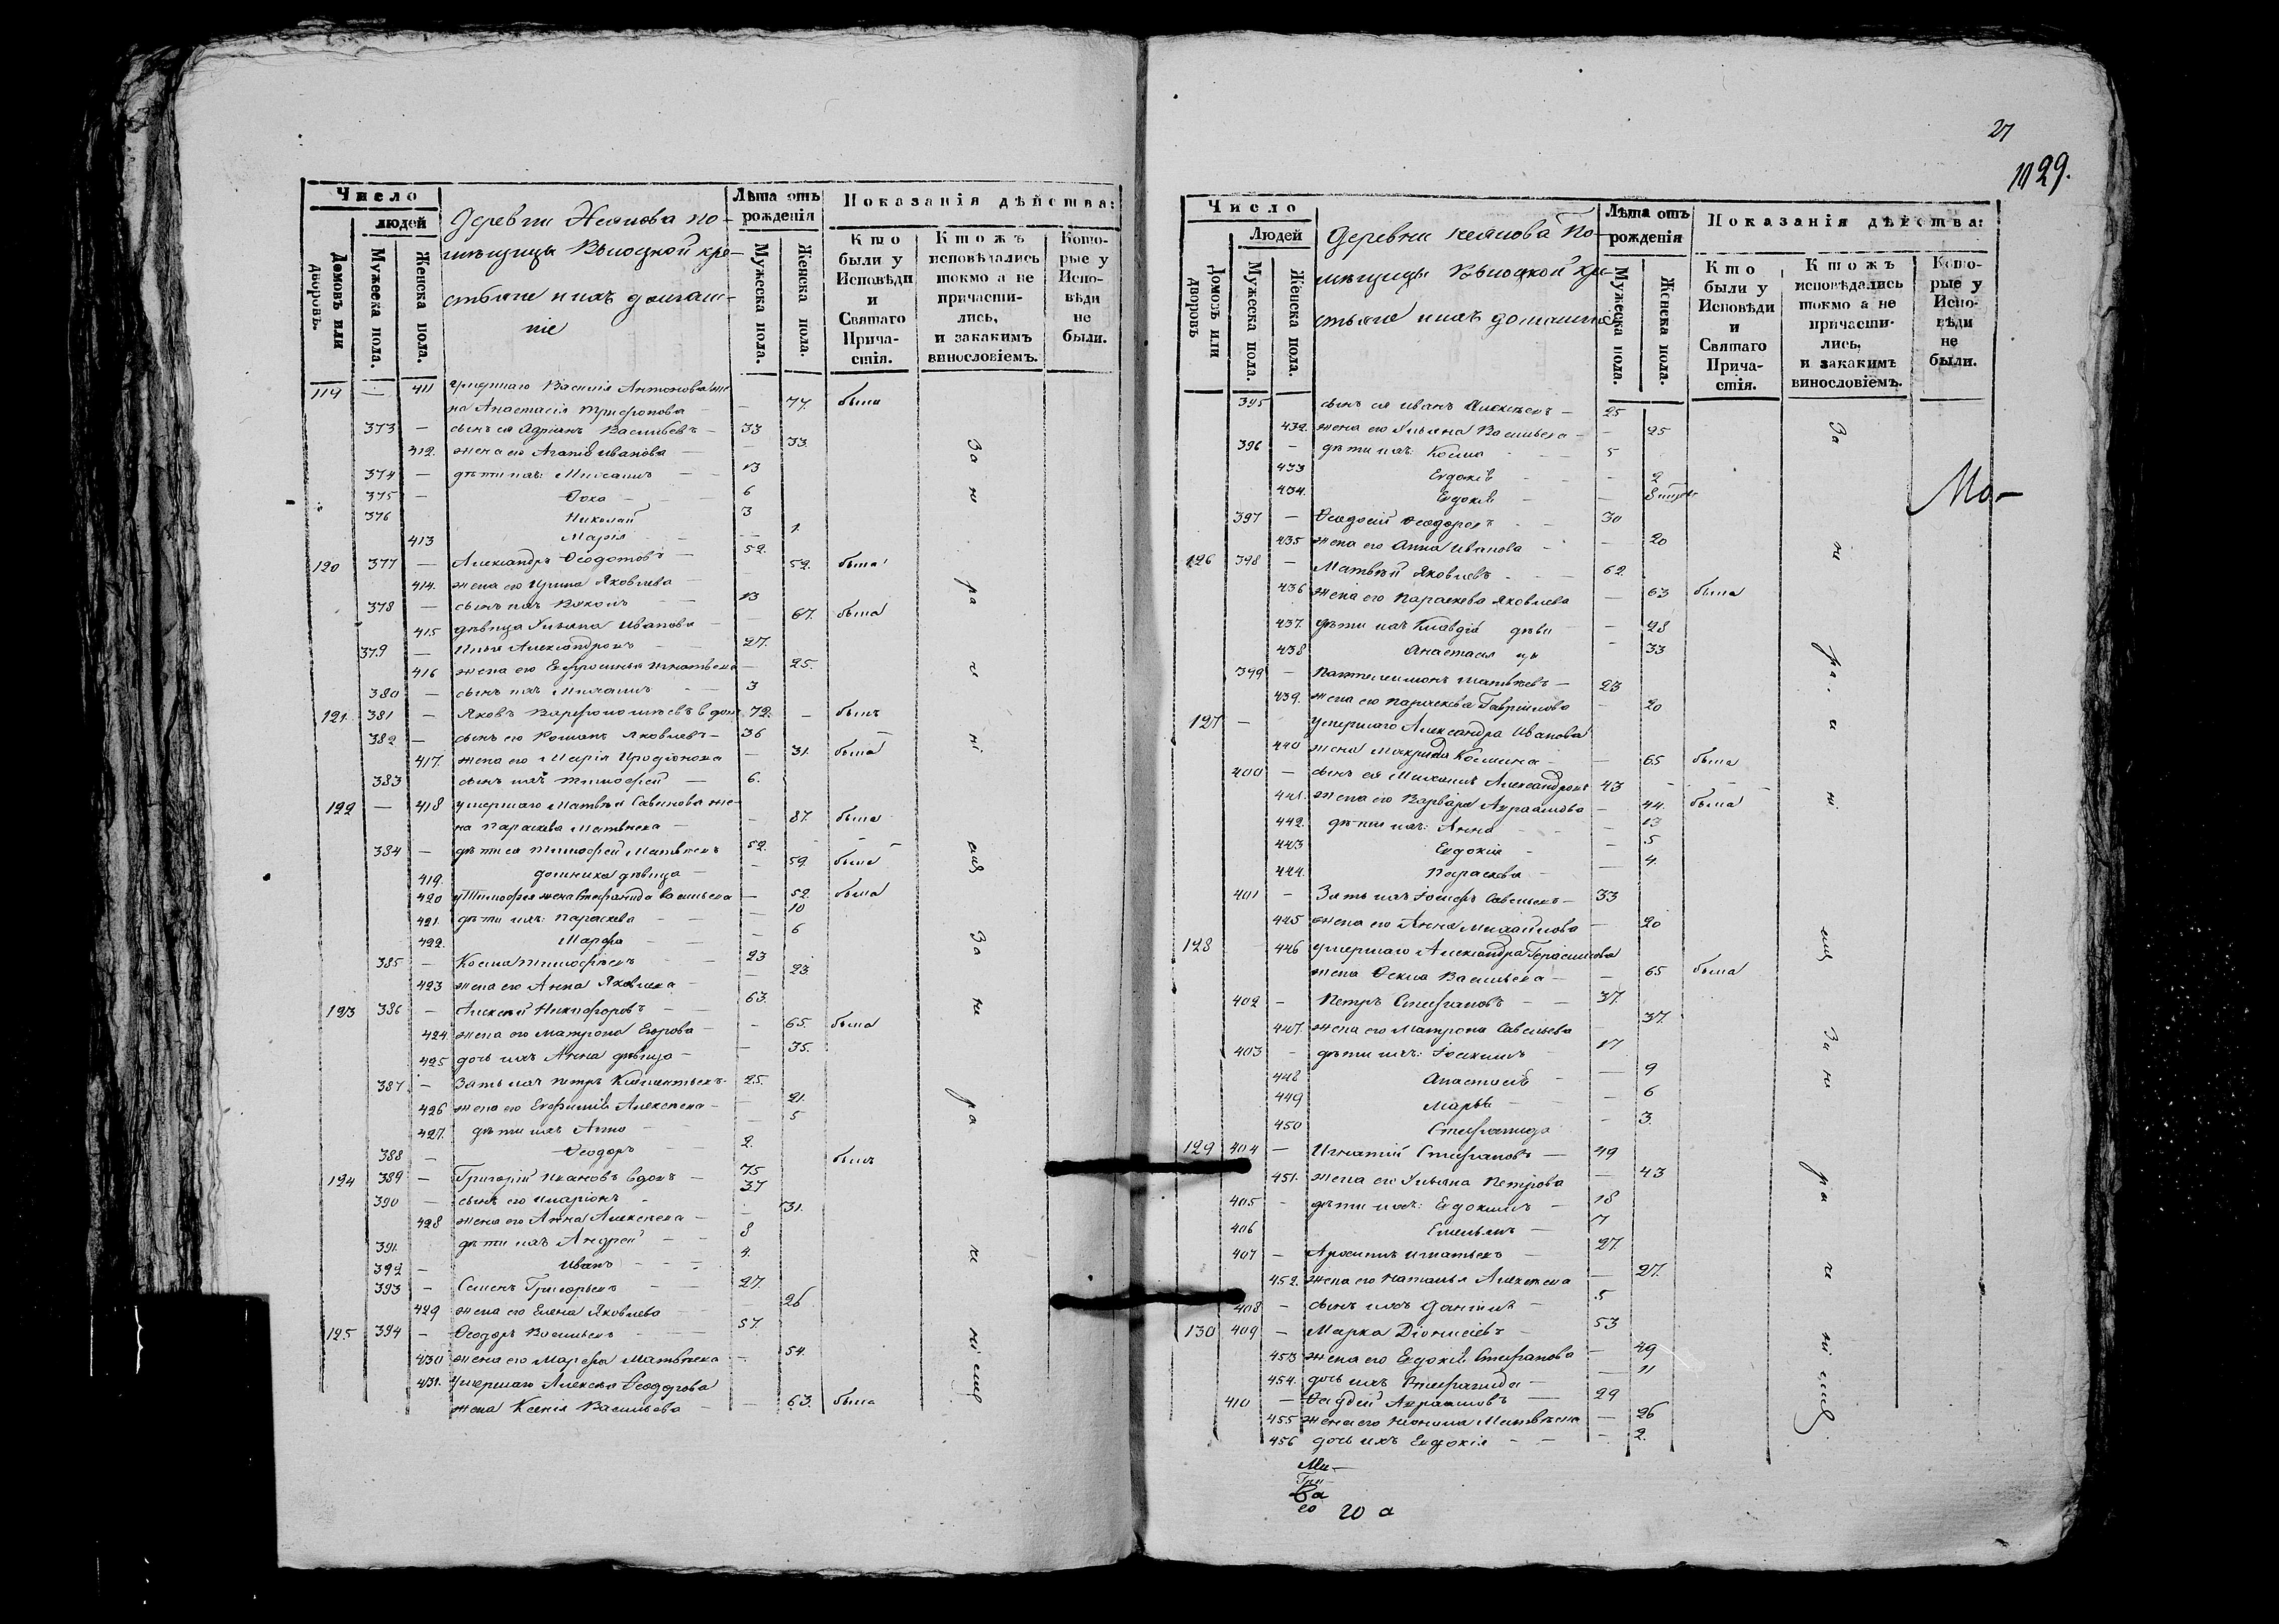 Число
людей
Домовъ или дворовъ.
Мужеска пола.
Женска пола.
Деревни Неанова по-
мѣщицы Высоцкой кре-
стьяне и ихъ домаш-
ніе
Лѣта отъ рожденія
Мужеска пола.
Женска пола.
Показанія дѣйства:
Кто были у Исповѣди и Святаго Причастія.
Ктожъ исповѣдались токмо а не причастились, и закакимъ винословіемъ.
Которые у Исповѣди не были.
119 — 411 умершаго Василія Антонова же-
на Анастасія Трифонова — — 77. была
373 — сынъ ея Адріанъ Васильевъ — 33
412. жена его Агаѳія Иванова — 33.
374 — дѣти ихъ: Михаилъ — 13
375 — Фока — 6
376 Николай 3
413 Марія — 1
120 377 — Александръ Ѳеодотовъ — 52.
414. жена его Ирина Яковлева — 52. была
378 — сынъ ихъ 13
415 дѣвица Ульяна Иванова — 67. была
379 — Илья Александровъ 27.
416 жена его Ефросинья Игнатьева — 25.
380 — сынъ ихъ Михаилъ — 3
121. 381 — Яковъ Варфоломѣевъ вдовъ 72. — былъ
382 — сынъ его Романъ Яковлевъ — 36
417. жена его Марія Иродіонова — 31. была
383 сынъ ихъ Тимофей — 6.
122 — 418 умершаго Матвѣя Савинова же-
на Параскева Матвѣева — — 87. была
384 — дѣти ея Тимофей Матвѣевъ 52.
419. домника дѣвица — — 59. была
420 у Тимофея жена Стефанида Васильева — 52. была
421. дѣти ихъ: Параскева — — 10
422. Марфа — — 6
385 — Косма Тимофѣевъ — 23
423 жена его Анна Яковлева — — 23
123 386 — Алексѣй Никифоровъ — 63.
424. жена его Матрона Егорова — — 65. была
425 дочь ихъ Анна дѣвица — — 35.
387 — Зять ихъ Петръ Климантьевъ. 25.
426 жена его Евфимія Алексѣева — — 21.
427. дѣти ихъ Анна — — 5
388 — Ѳеодоръ — 2.
124 389 — Григорій Ивановъ вдовъ — 75 былъ
390 — сынъ его Иларіонъ — 37
428 жена его Анна Алексѣева — — 31.
391. дѣти ихъ Андрей — 8
392 — Иванъ — 4.
393 — Семенъ Григорьевъ — 27.
429 жена его Елена Яковлева — — 26
125 394 — Ѳеодоръ Васильевъ — 57.
430 жена его Марфа Матвѣева — 54.
431. умершаго Алексѣя Ѳеодорова
жена Ксенія Васильева — — 63. была
За не ра че ні емъ
За не ра че ні емъ
27
1029.
Число
Людей
Домовъ или дворовъ
Мужеска пола.
Женска пола.
Деревни Неанова По-
мѣщицы Высоцкой кре-
стьяне и ихъ домашніе
Лѣта отъ рожденія
Мужеска пола.
Женска пола.
Показанія дѣйства:
Кто были у Исповѣди и Святаго Причастія.
Ктожъ исповѣдались токмо а не причастились, и закакимъ винословіемъ.
Которые у Исповѣди не были.
395 сынъ ея Иванъ Алексѣевъ — 25
432. жена его Ульяна Васильева — — 25
396 — дѣти ихъ: Косма — 5
433 Евдокія — — 2
434. Евдокія —
397 — Ѳеодосій Ѳеодоровъ — 30
435 жена его Анна Иванова — — 20
126 398 — Матвѣй Яковлевъ — 62.
436 жена его Параскева Яковлева — 63 была
437. дѣти ихъ Клавдія дѣви — — 28
438 Анастасія — 33
399 — Пантелеимонъ Матвѣевъ — 23
439. жена его Параскева Гавриилова — 20
127 — умершаго Александра Иванова
440 жена Макрида Космина — — 65 была
400 — сынъ ея Михаилъ Александровъ 43
441. жена его Варвара Авраамова — 44. была
442. дѣти ихъ: Анна — — 13
443 Евдокія — — 5
444. Параскева — — 4.
401 — Зять ихъ Іосифъ Савельевъ — 33
445 жена его Анна Михайлова — — 20
128 446 умершаго Александра Герасимова
жена Ѳекла Васильева — — 65 была
402 — Петръ Стефановъ — 37.
447. жена его Матрона Савельева — 37.
403 — дѣти ихъ: Іоакимъ — 17
448 Анастасія — — 9
449 Марѳа — — 6
450 Стефанида — 3.
129 404 — Игнатій Стефановъ — 49
451. жена его Ульяна Петрова — 43
405 — дѣти ихъ: Евдокимъ — 18
406 Емельянъ — 7
407 — Архипъ Игнатьевъ — 27.
452. жена его Наталья Алексѣева — 27.
408 — сынъ ихъ Даніилъ — 5
130 409 — Марка Діонисіевъ — 53
453 жена его Евдокія Стефанова — 49
454. дочь ихъ Стефанида — — 11
410 — Ѳаддей Авраамовъ — 29
455 жена его Неонила Матвѣева — 26
456 дочь ихъ Евдокія — — 2.
За не ра че ні емъ
За не ра че ні емъ
Ма-
Ми-
Гри-
Ва
со 20 а